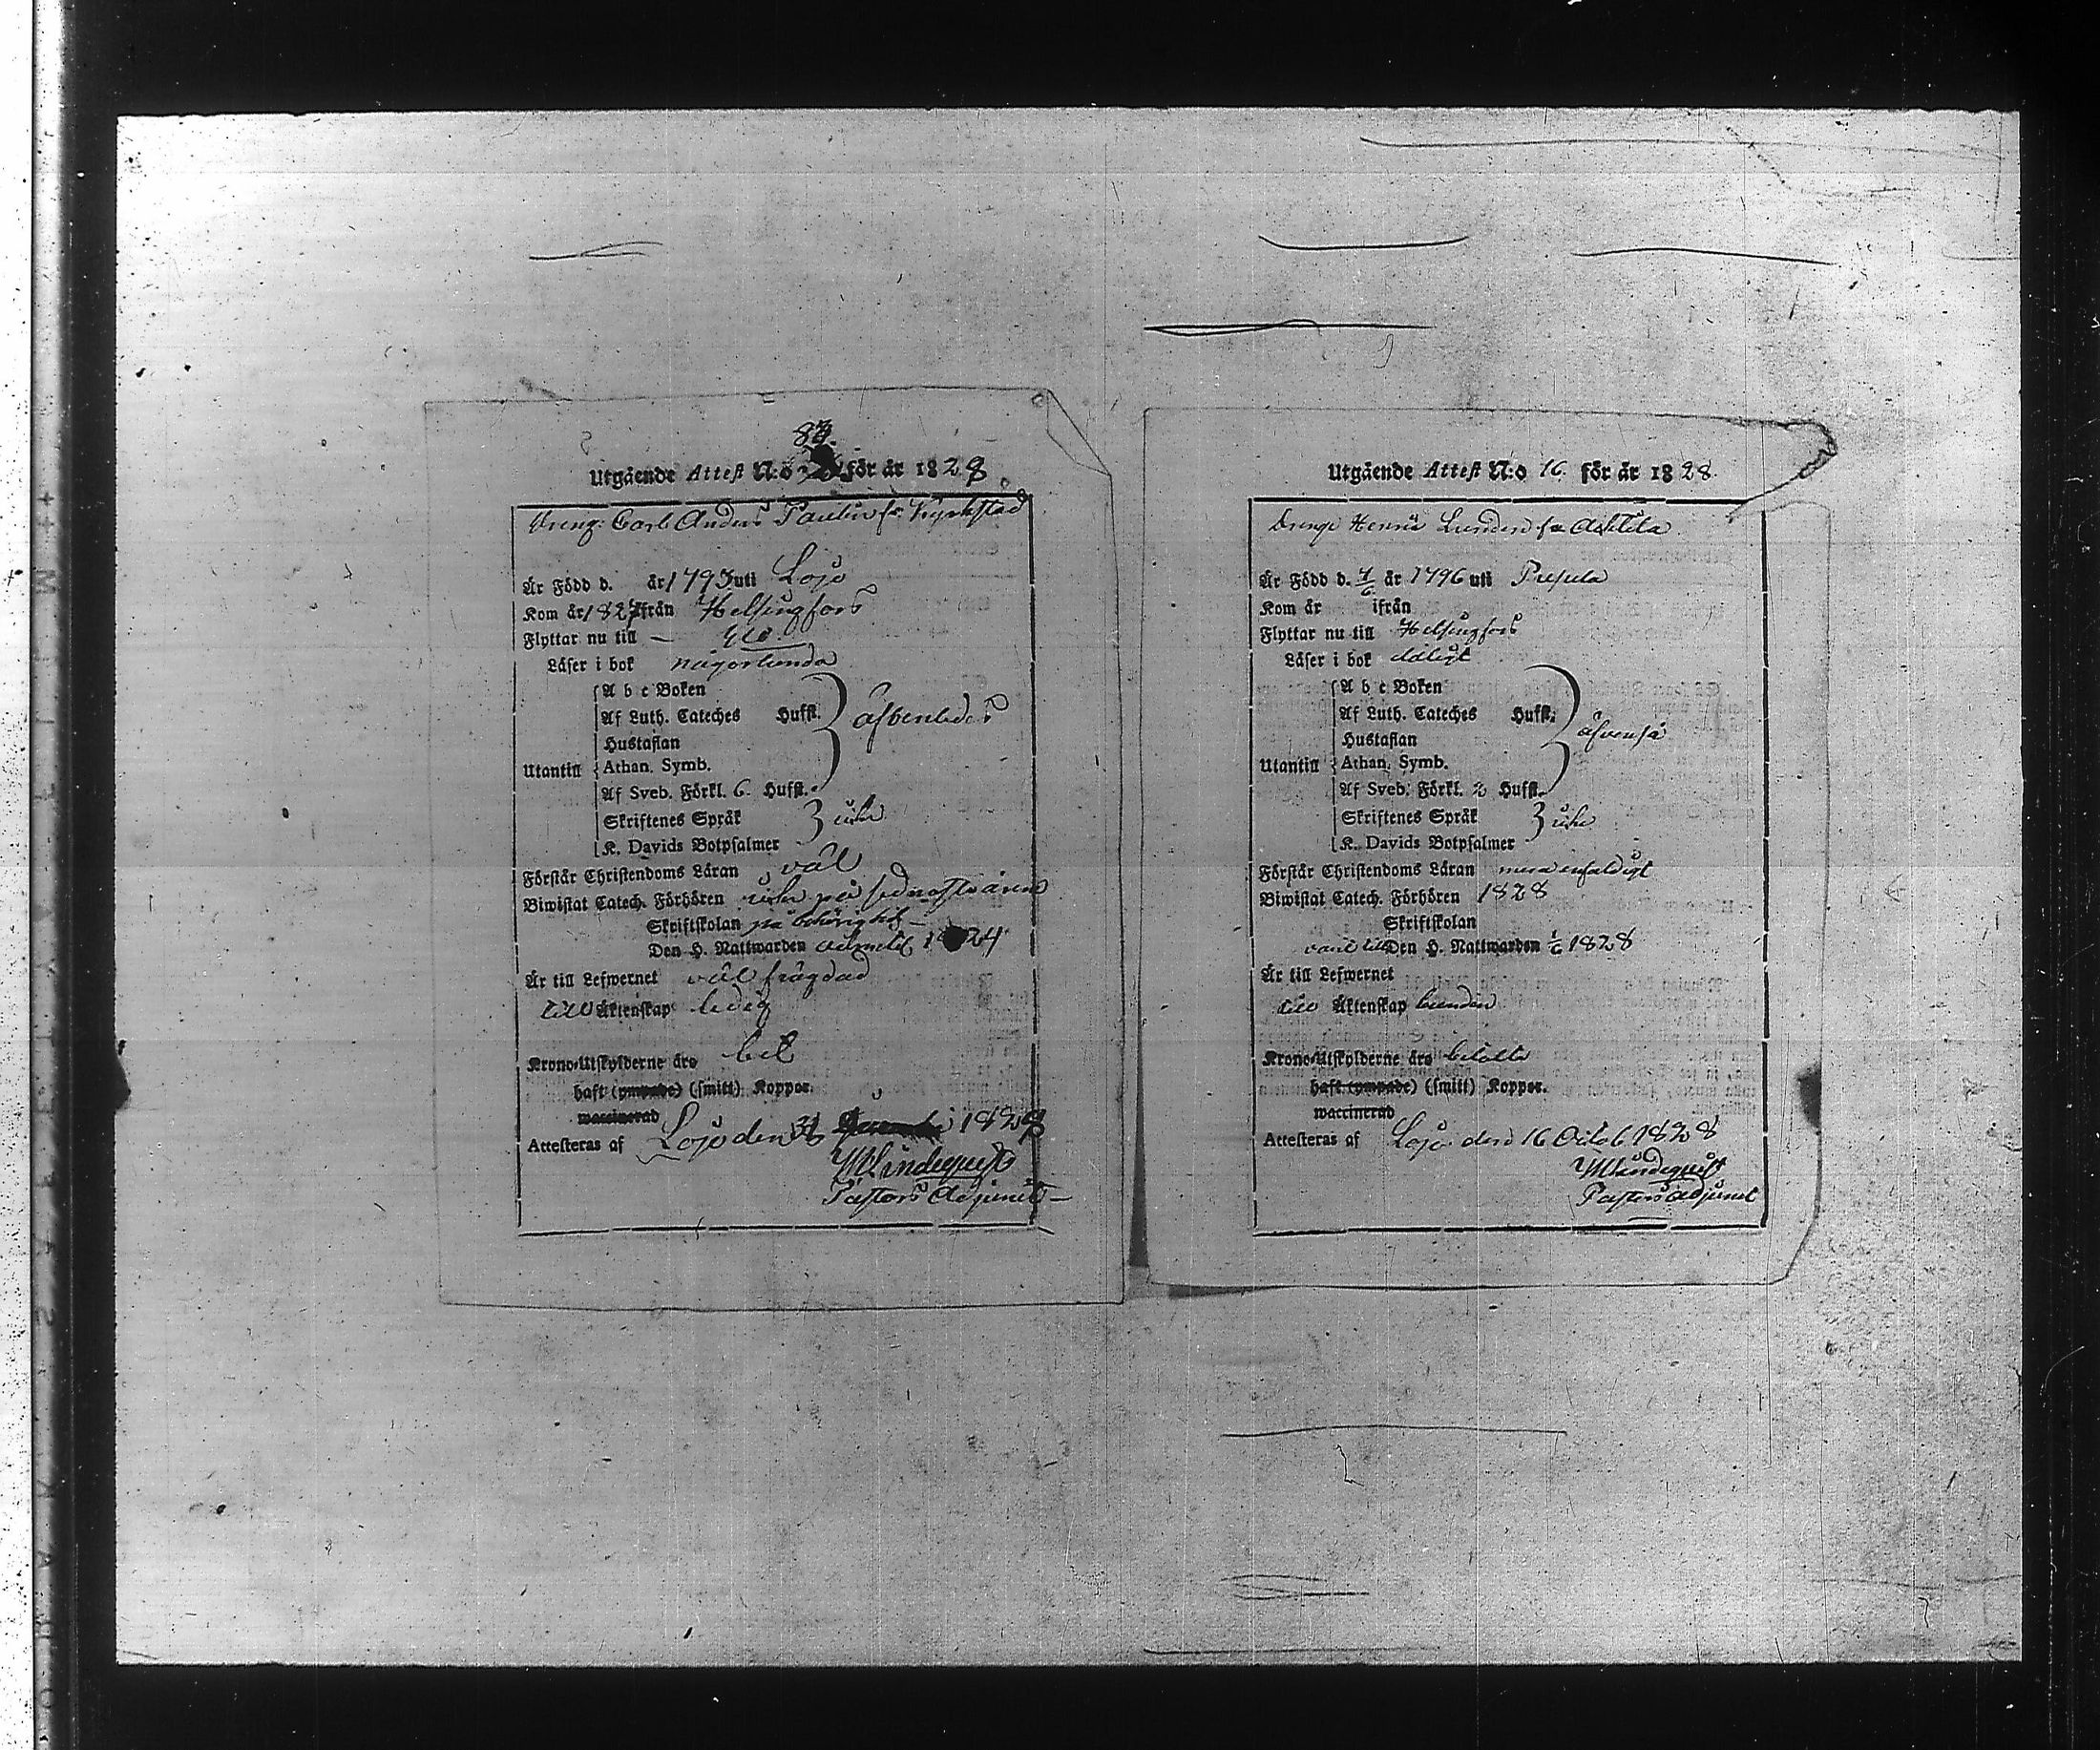 84.
Utgående Attest N:o för år 1828.
Dreng: Carl Anders Paulin fr. Kyrkstad
Är Född d. år 1793 uti Lojo
Kom år 1827 ifrån Helsingfors
Flyttar nu till —
Läser i bok någorlunda
A b c Boken
Af Luth. Cateches Hufst.
Hustaflan
äfvenledes
Utantill
Athan. Symb.
Af Sveb. Förkl. 6. Hufst.
Skriftenes Språk
K. Davids Botpsalmer
Förstår Christendoms Läran väl
Biwistat Catech. Förhören icke på sednaste åren
Skriftskolan på
Den H. Nattwarden 1824
Är till Lefwernet väl frägdad
till Äktenskap ledig
Krono-Utskylderne äro bet
haft (ympade) (smitt) Koppor.
waccinerad
Attesteras af Lojo den 31 1828
Lindequist
Pastors Adjunct
Utgående Attest N:o 16. för år 1828.
Drenge Henric Lunden fr
Är Född d. år 1796 uti Pusula
Kom år ifrån
Flyttar nu till Helsingfors
Läser i bok dåligt
A b c Boken
Af Luth. Cateches Hufst.
Hustaflan
äfvenså
Utantill
Athan. Symb.
Af Sveb. Förkl. 2 Hufst.
Skriftenes Språk
icke
K. Davids Botpsalmer
Förstår Christendoms Läran mera enfaldigt
Biwistat Catech. Förhören 1828
Skriftskolan
varit till Den H. Nattwarden 1/6 1828
Är till Lefwernet
till Äktenskap bunden
Krono-Utskylderne äro betalte
haft (ympade) (smitt) Koppor.
waccinerad
Attesteras af Lojo den 16 Octob 1828
Lindequist
Pastors adjunct